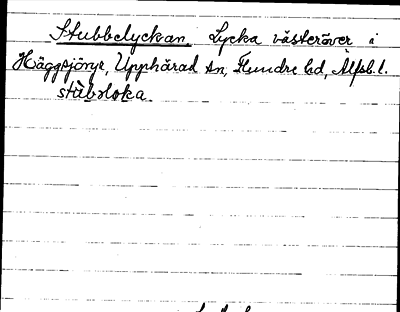 Stubbelyckan. Lycka västeröver i
Häggsjöryr, Upphärad sn, Flundre hd, Älfsb. l.
stùbəloka.